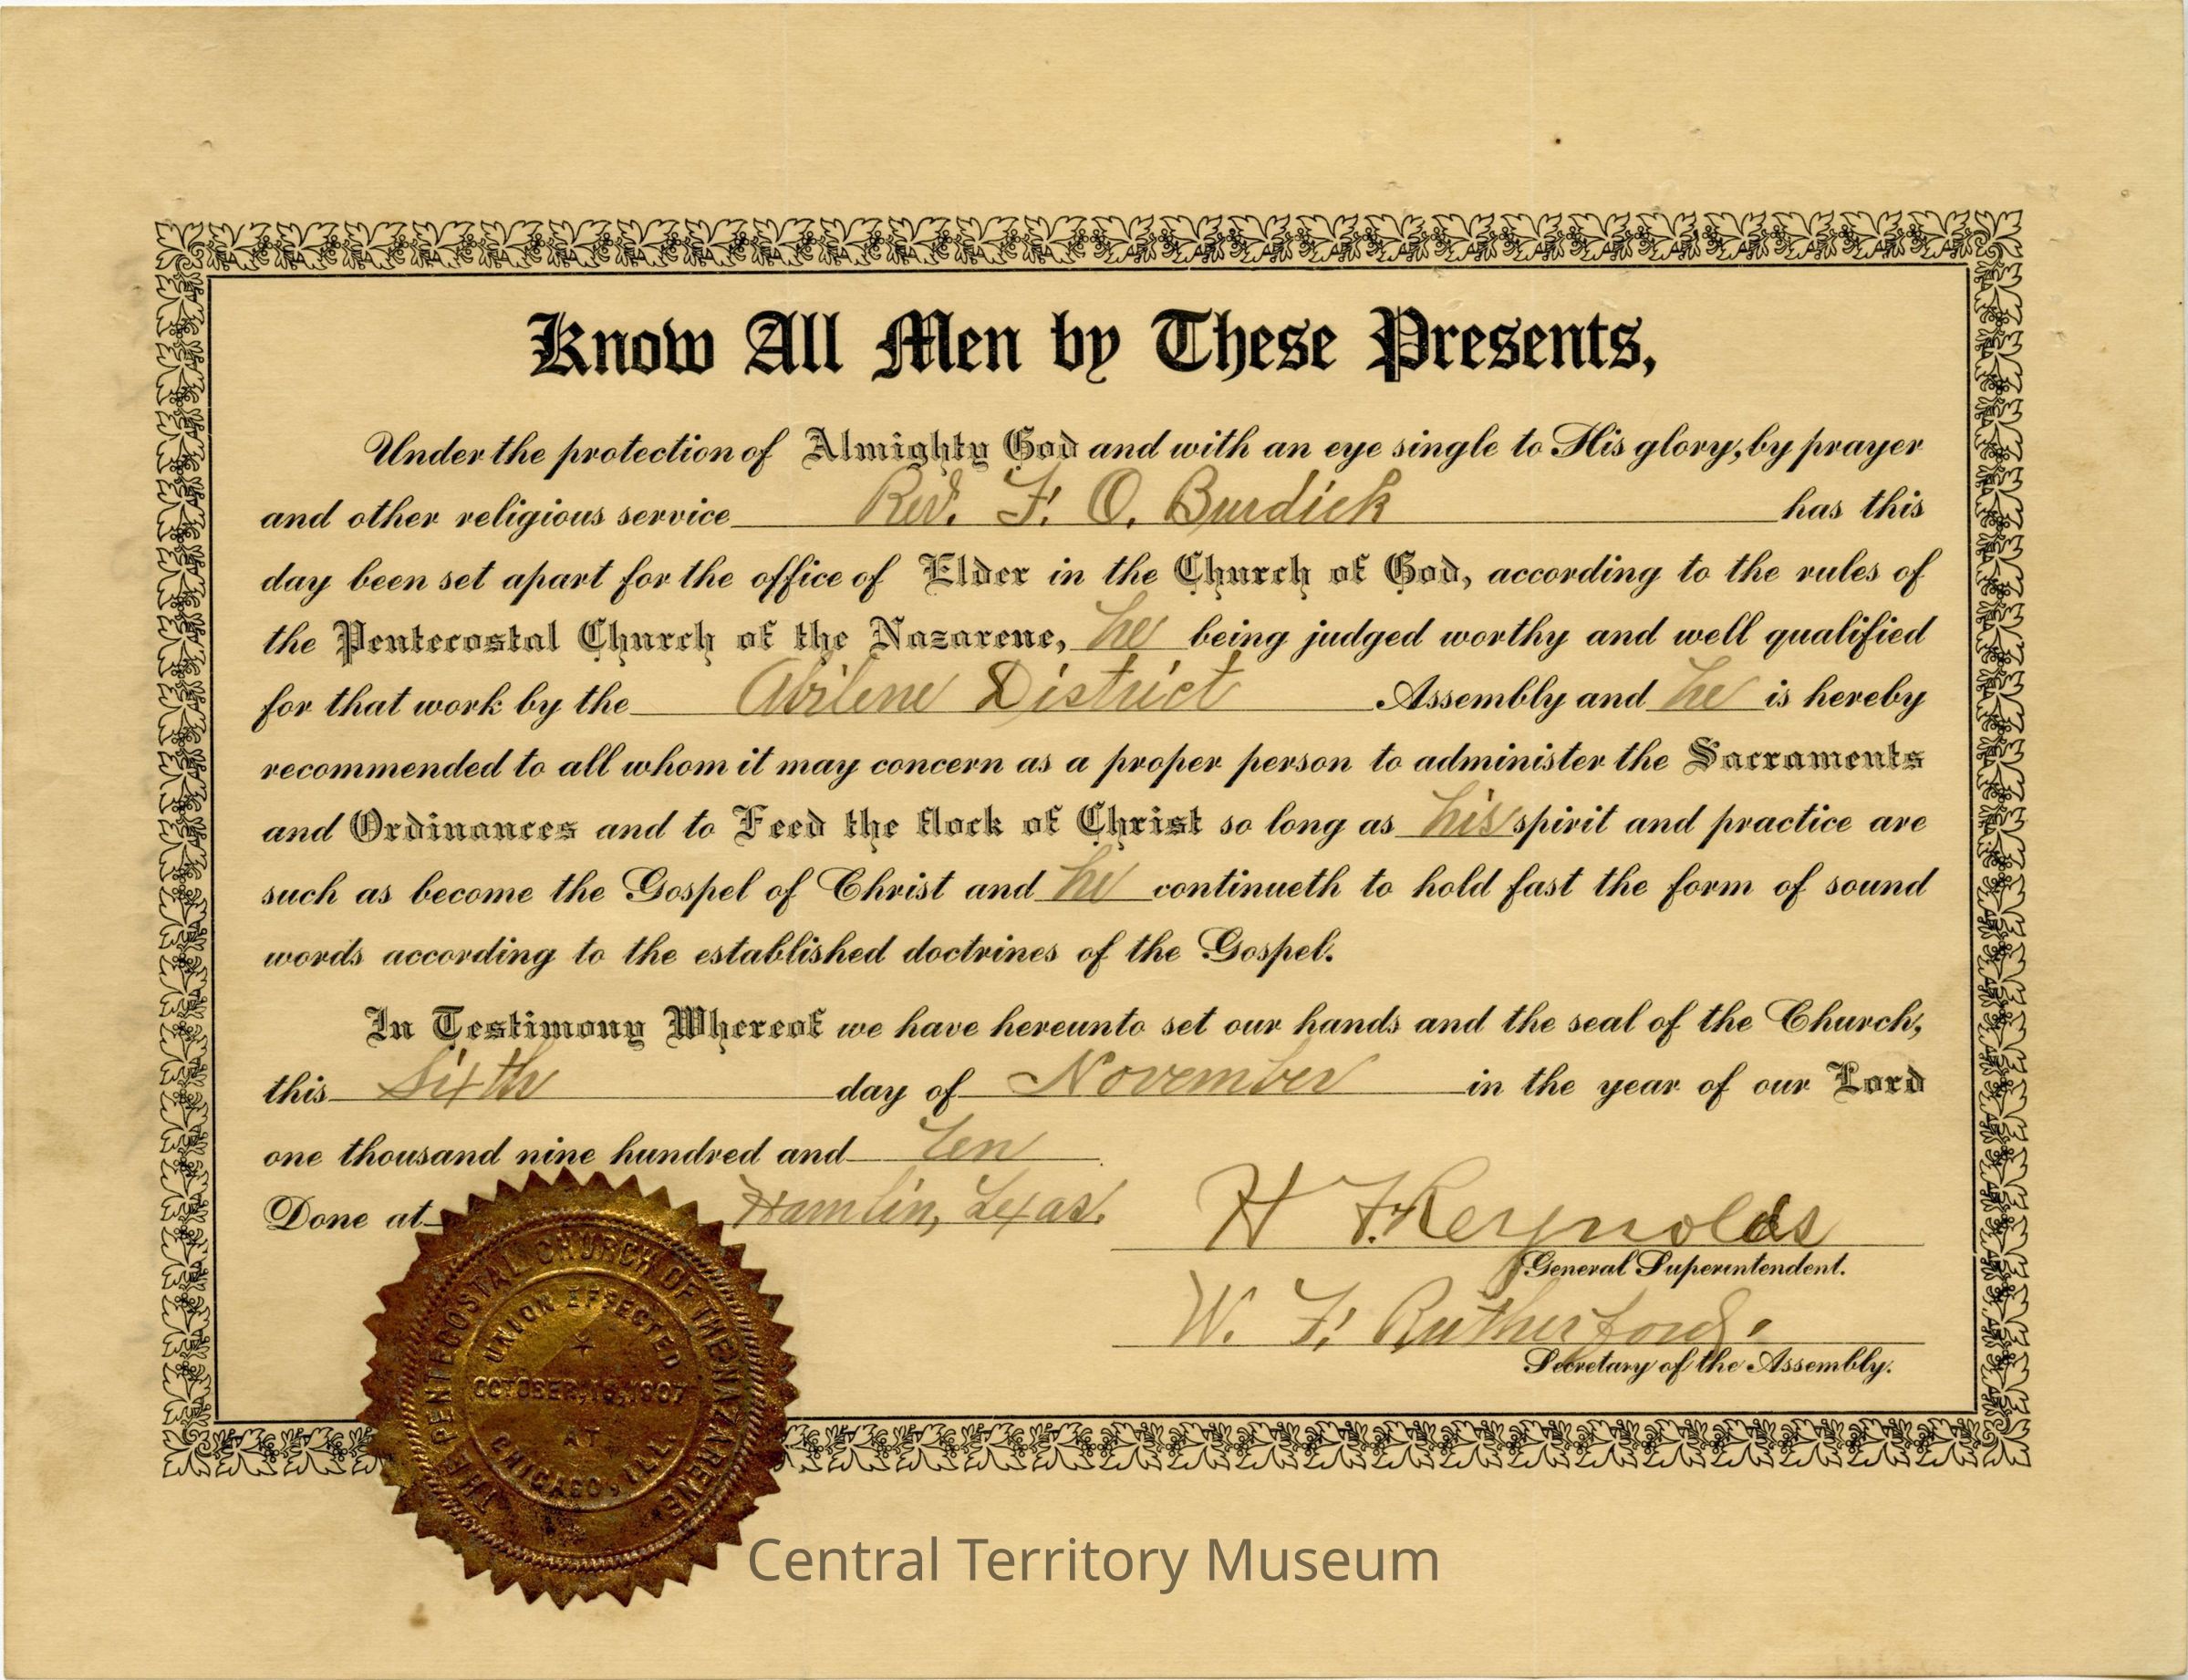 Know All Men by These Presents,
Under the protection of Almighty God and with an eye single to His glory, by prayer
and other religious service Rev. F. O. Burdick has this
day been set apart for the office of Elder in the Church of God, according to the rules of
the Pentecostal Church of the Nazarene, he being judged worthy and well qualified
for that work by the Abilene District Assembly and he is hereby
recommended to all whom it may concern as a proper person to administer the Sacraments
and Ordinances and to Feed the flock of Christ so long as his spirit and practice are
such as become the Gospel of Christ and he continueth to hold fast the form of sound
words according to the established doctrines of the Gospel.
In Testimony Whereof we have hereunto set our hands and the seal of the Church,
this Sixth day of November in the year of our Lord
one thousand nine hundred and Ten
Done at Hamlin, Texas.
H F. Reynolds
General Superintendent.
W. F. Rutherford.
Secretary of the Assembly.
THE PENTECOSTAL CHURCH OF THE NAZARENE
UNION EFFECTED
OCTOBER, 16, 1907
AT
CHICAGO, ILL
Central Territory Museum